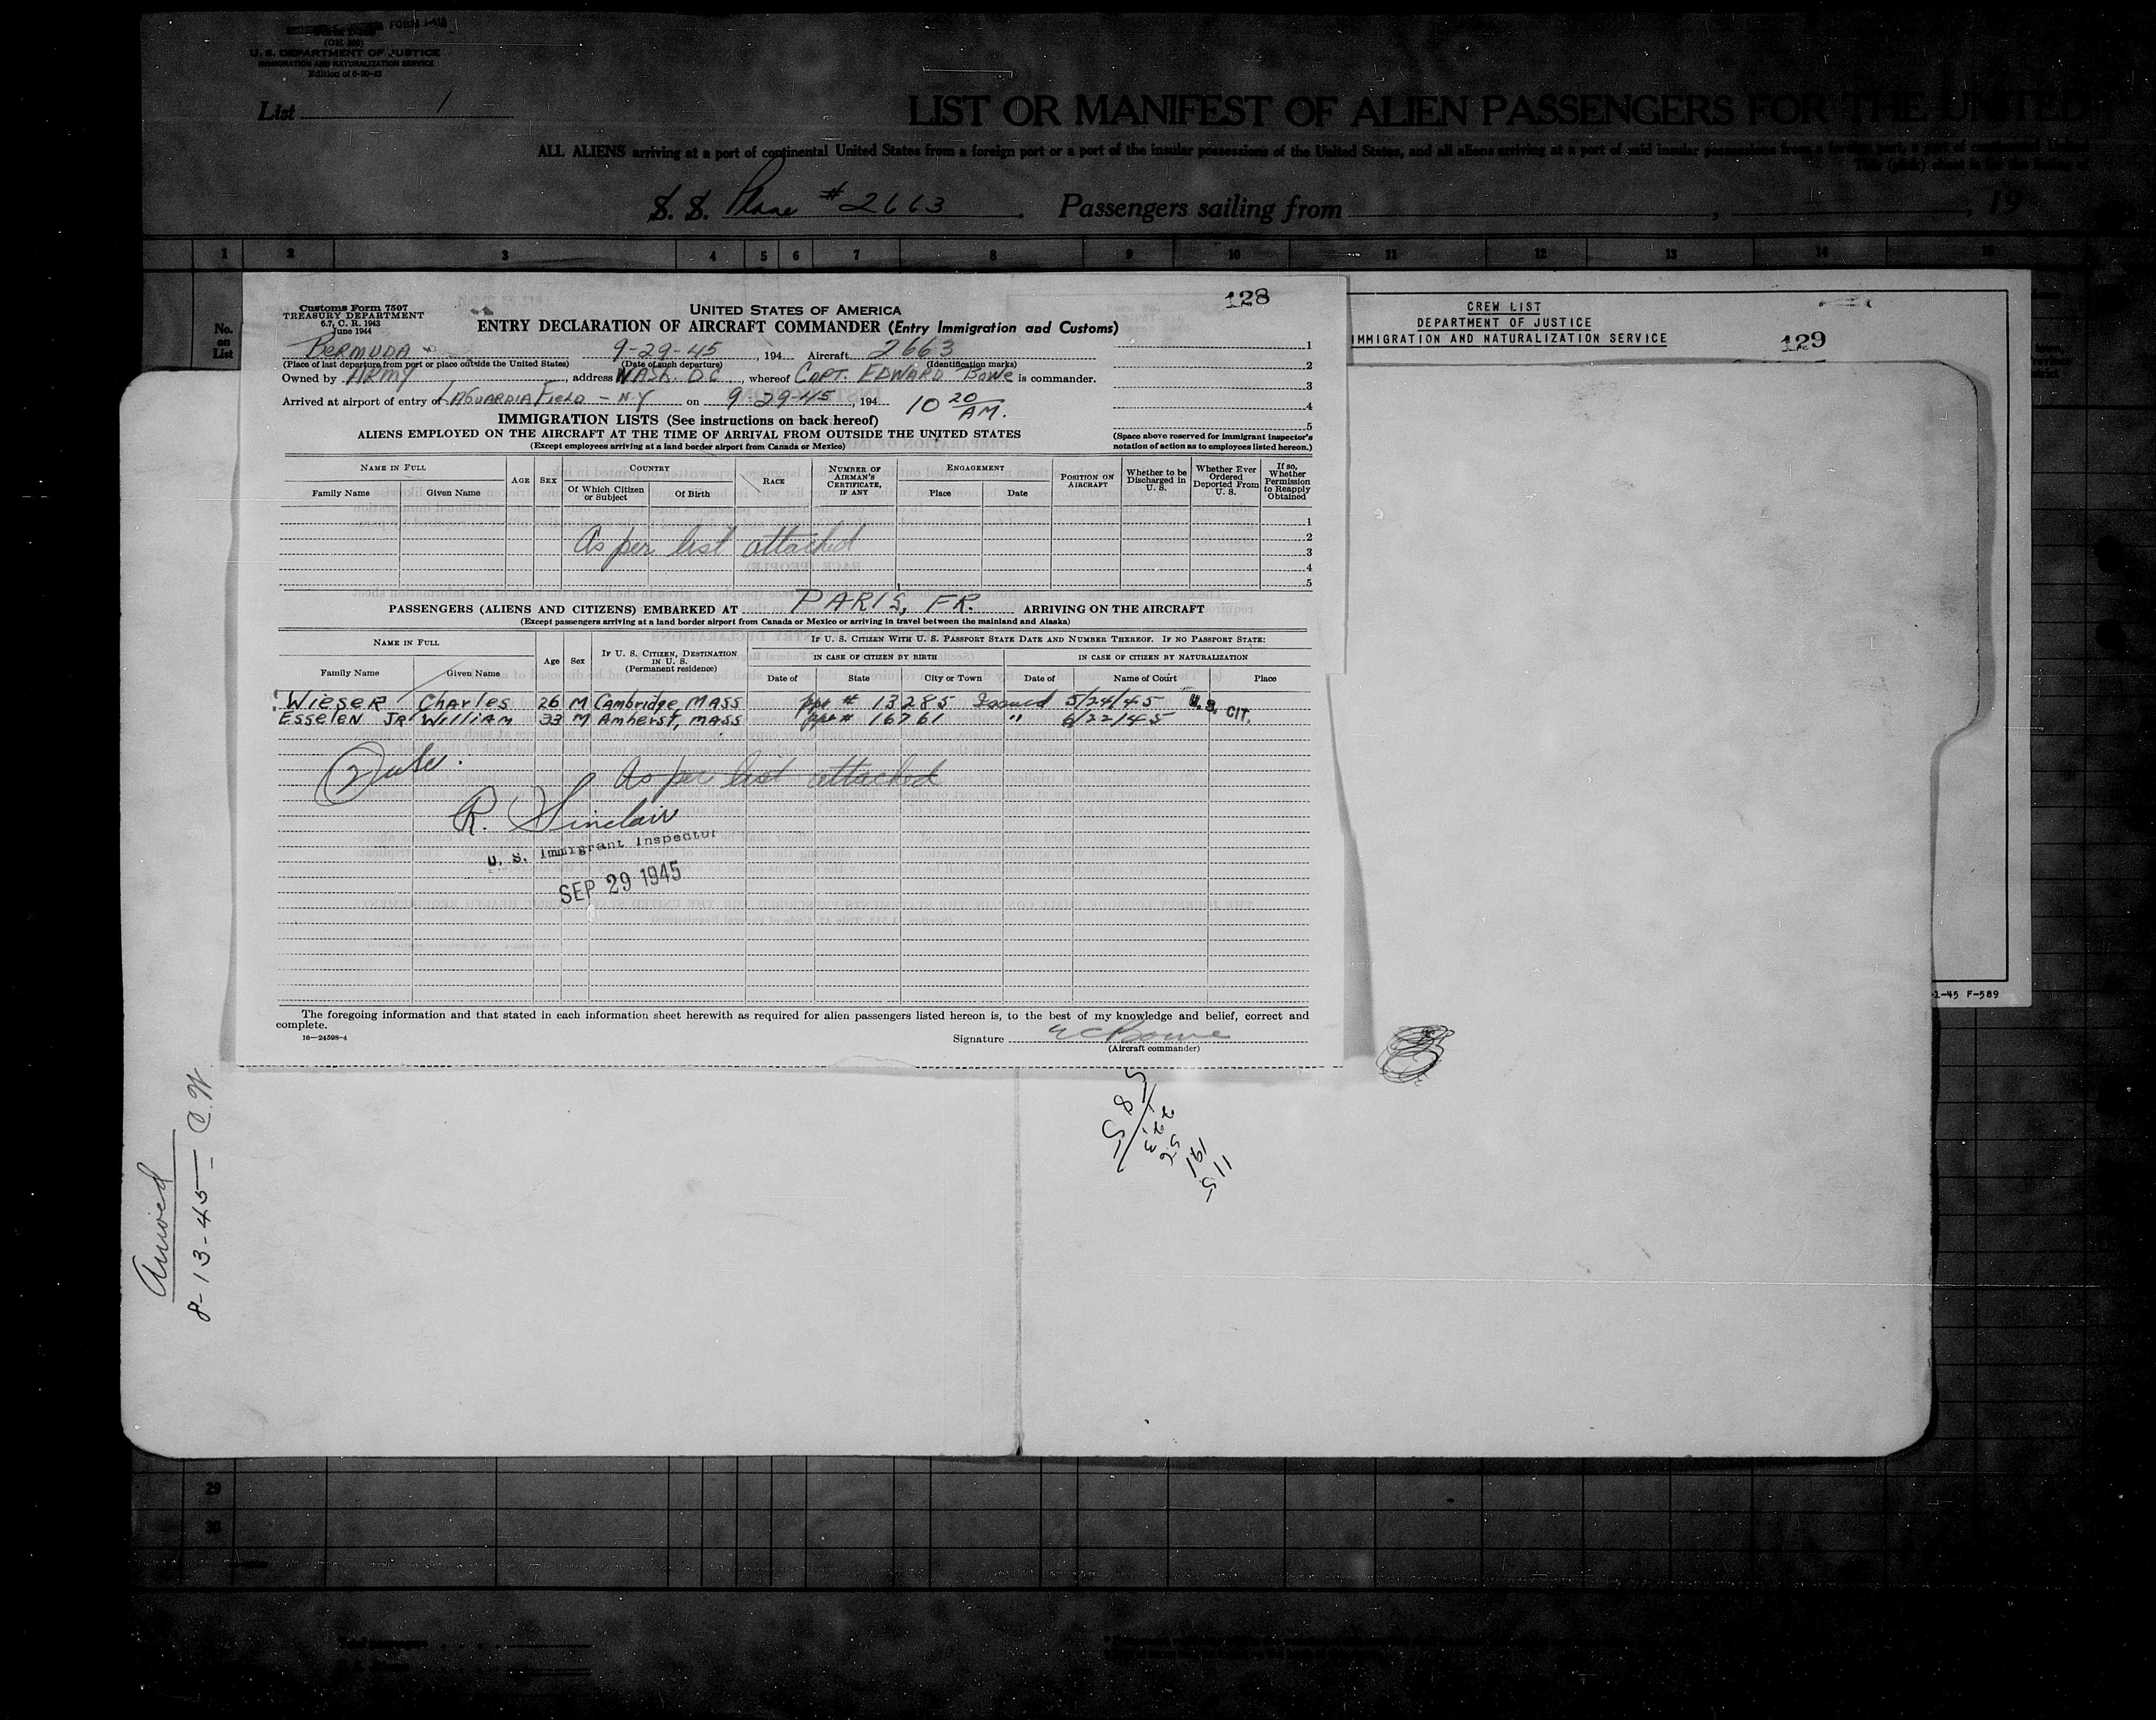 FORM I-418
U. S. DEPARTMENT OF JUSTICE
IMMIGRATION AND NATURALIZATION SERVICE
List 1
LIST OR MANIFEST OF ALIEN PASSENGERS FOR THE UNITED
ALL ALIENS arriving at a port of continental United States from a foreign port or a port of the insular possessions of the United States, and all aliens arriving at a port of said insular possessions from a foreign port, a port of continental United
S. S. Plane #2663 . Passengers sailing from , , 19
1 2 3 4 5 6 7 8 9 10 11 12 13 14 15
No. on List
Customs Form 7507
TREASURY DEPARTMENT
6.7, C. R. 1943
June 1944
UNITED STATES OF AMERICA
128
ENTRY DECLARATION OF AIRCRAFT COMMANDER (Entry Immigration and Customs)
BERMUDA 9-29-45, 194 Aircraft 2663
(Place of last departure from port or place outside the United States) (Date of such departure) (Identification marks)
Owned by ARMY, address WASH. DC, whereof CAPT. EDWARD BOWE is commander.
Arrived at airport of entry of LAGUARDIA FIELD - N.Y on 9-29-45, 194 10 20 AM.
1
2
3
4
5
IMMIGRATION LISTS (See instructions on back hereof)
ALIENS EMPLOYED ON THE AIRCRAFT AT THE TIME OF ARRIVAL FROM OUTSIDE THE UNITED STATES
(Except employees arriving at a land border airport from Canada or Mexico)
(Space above reserved for immigrant inspector's
notation of action as to employees listed hereon.)
NAME IN FULL AGE SEX COUNTRY RACE NUMBER OF AIRMAN'S CERTIFICATE, IF ANY ENGAGEMENT POSITION ON AIRCRAFT Whether to be Discharged in U. S. Whether Ever Ordered Deported From U. S. If so, Whether Permission to Reapply Obtained
Family Name Given Name Of Which Citizen or Subject Of Birth Place Date
1
2
As per list attached
3
4
5
PASSENGERS (ALIENS AND CITIZENS) EMBARKED AT PARIS, FR. ARRIVING ON THE AIRCRAFT
(Except passengers arriving at a land border airport from Canada or Mexico or arriving in travel between the mainland and Alaska)
NAME IN FULL Age Sex IF U. S. CITIZEN, DESTINATION IN U. S. (Permanent residence) IF U. S. CITIZEN WITH U. S. PASSPORT STATE DATE AND NUMBER THEREOF. IF NO PASSPORT STATE:
IN CASE OF CITIZEN BY BIRTH IN CASE OF CITIZEN BY NATURALIZATION
Family Name Given Name Date of State City or Town Date of Name of Court Place
WIESER Charles 26 M Cambridge, MASS ppt # 13285 Issued 5/24/45 U.S. CIT.
ESSELEN JR WILLIAM 33 M Amherst, MASS ppt # 16761 " 6/22/45
As per list attached
R. Sinclair
U. S. Immigrant Inspector
SEP 29 1945
The foregoing information and that stated in each information sheet herewith as required for alien passengers listed hereon is, to the best of my knowledge and belief, correct and
complete.
16—24598-4
Signature EC Bowe
(Aircraft commander)
CREW LIST
DEPARTMENT OF JUSTICE
IMMIGRATION AND NATURALIZATION SERVICE
129
-45 F-589
Arrived
8-13-45 C.W.
29
30